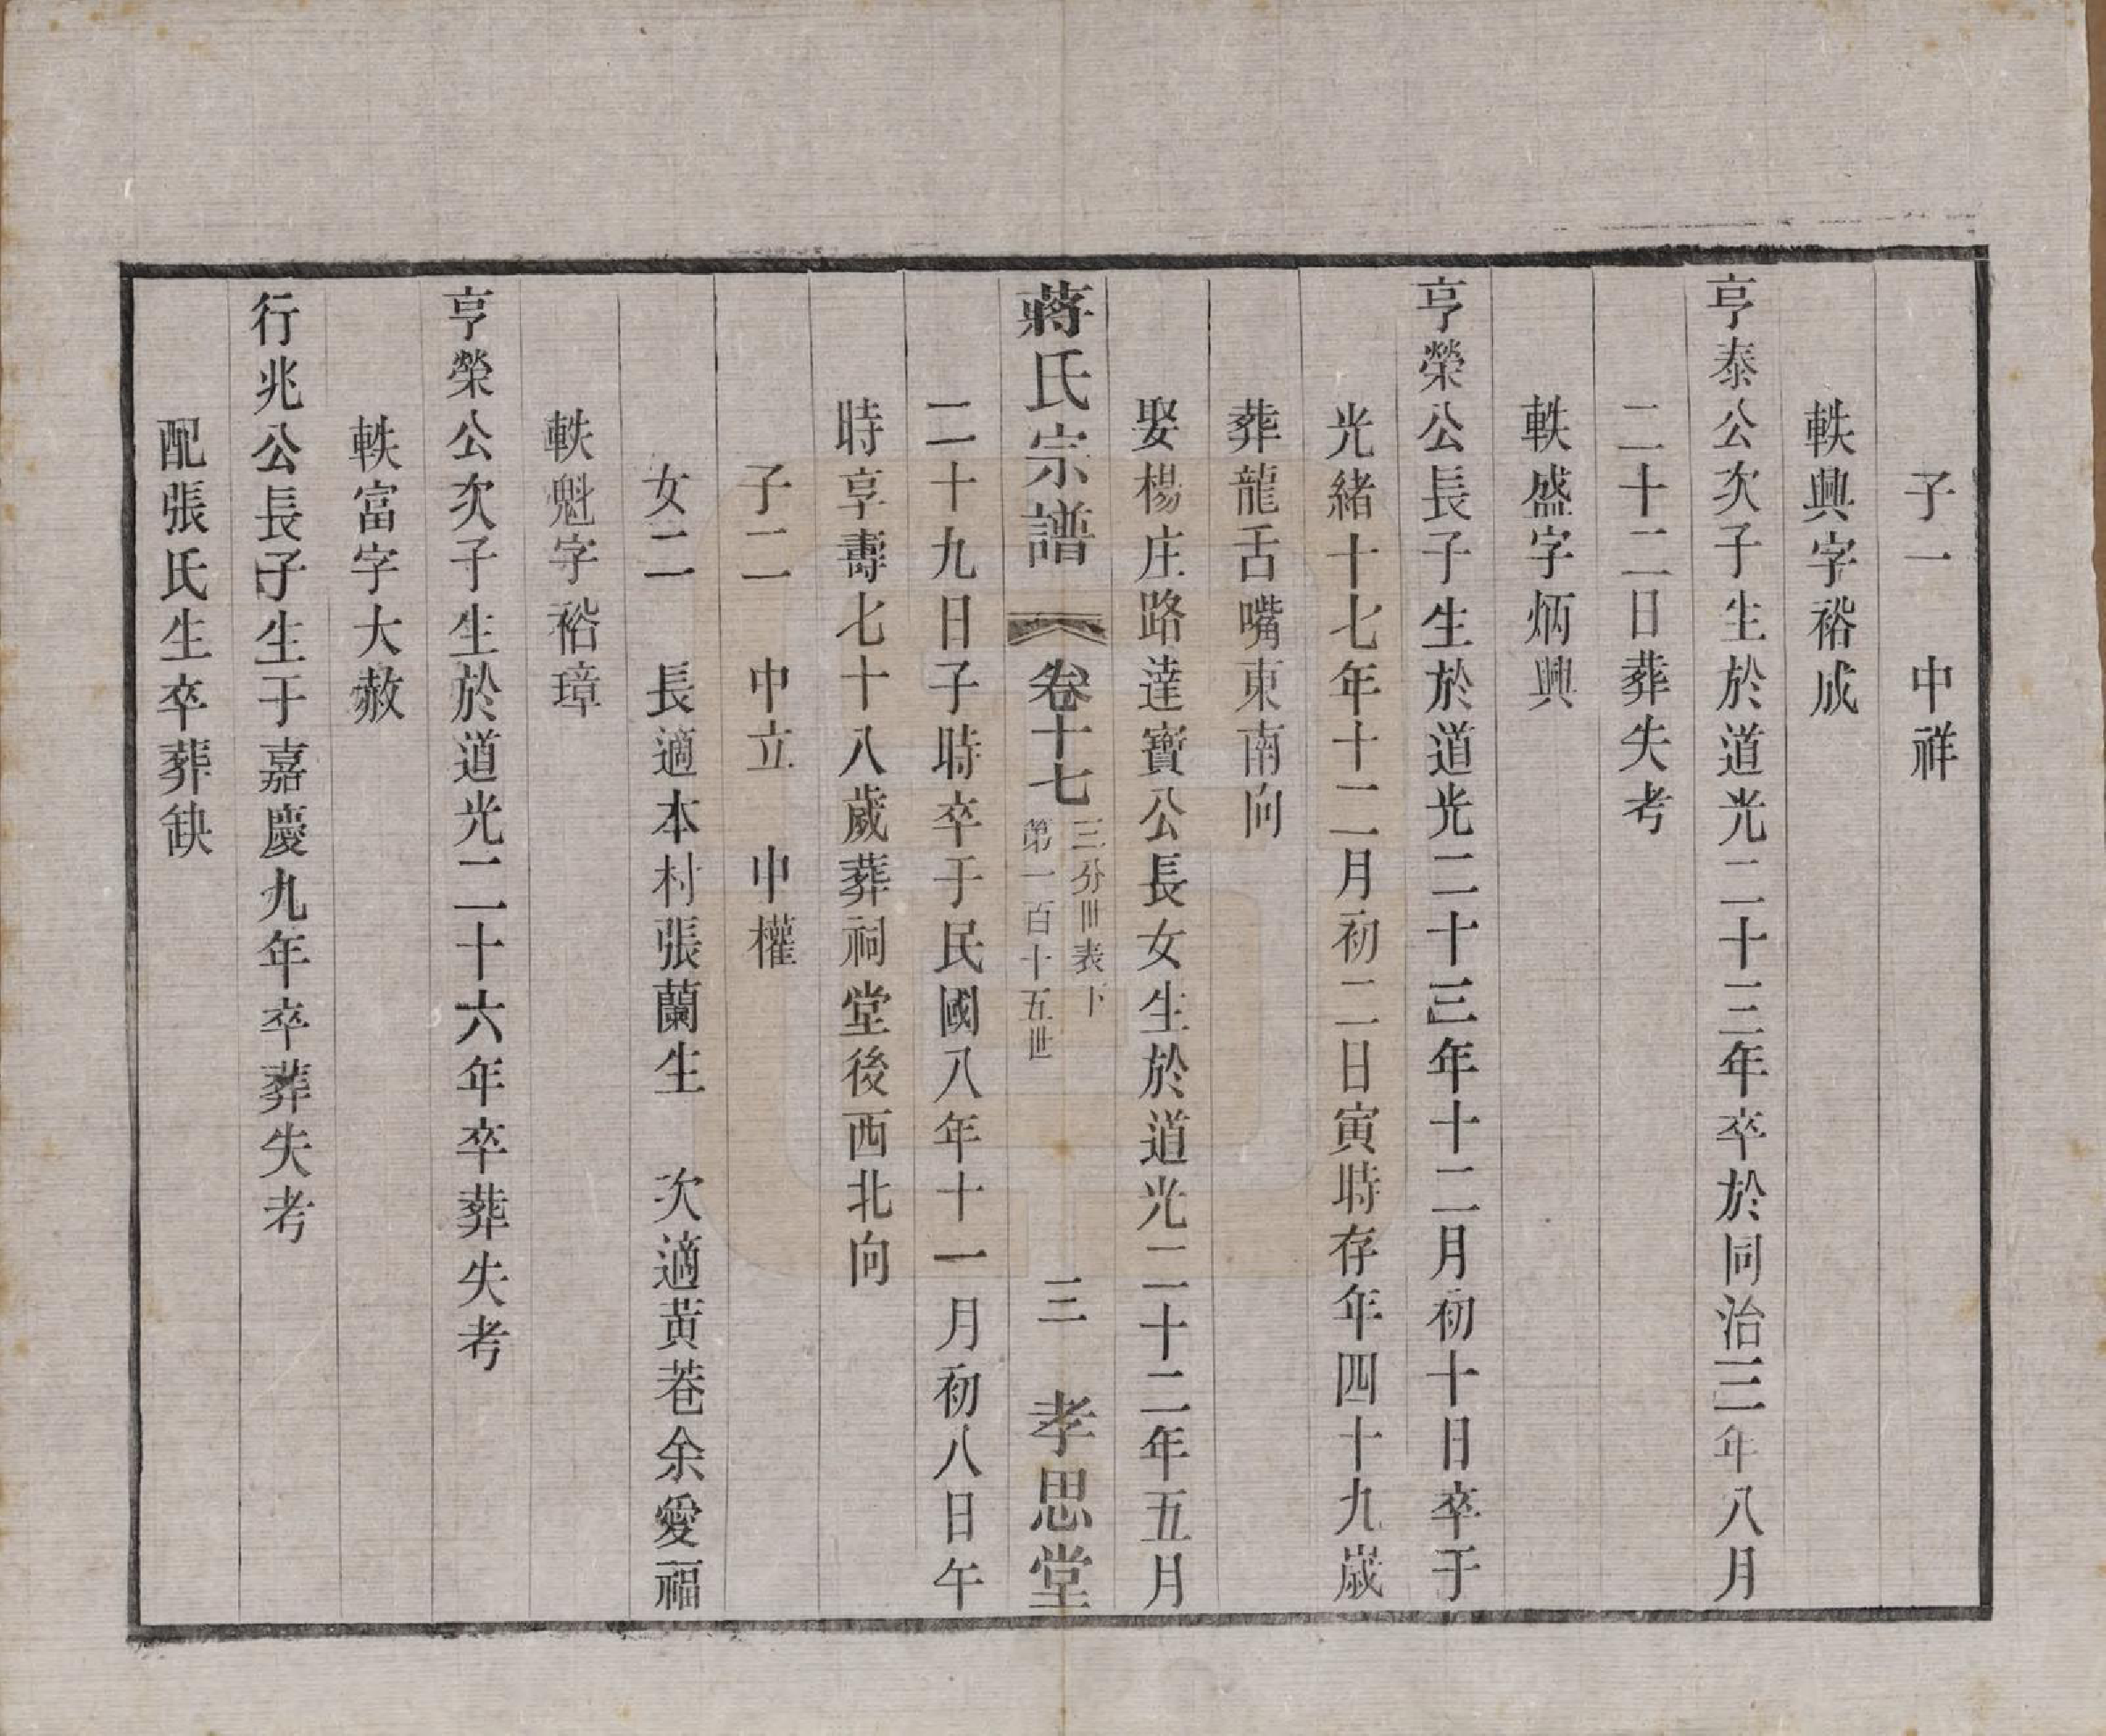 子一　中祥
軼興字裕成
亨泰公次子生於道光二十三年卒於同治三年八月
二十二日葬失考
軼盛字炳興
亨榮公長子生於道光二十三年十二月初十日卒于
光緒十七年十二月初二日寅時存年四十九歲
葬龍舌嘴東南向
娶楊庄路達寶公長女生於道光二十二年五月
蔣氏宗譜　卷十七　三分世表下　第一百十五世　三　孝思堂
二十九日子時卒于民國八年十一月初八日午
時享壽七十八歲葬祠堂後西北向
子二　中立　中權
女二　長適本村張蘭生　次適黃巷余愛福
軼魁字裕璋
亨榮公次子生於道光二十六年卒葬失考
軼富字大赦
行兆公長子生于嘉慶九年卒葬失考
配張氏生卒葬缺